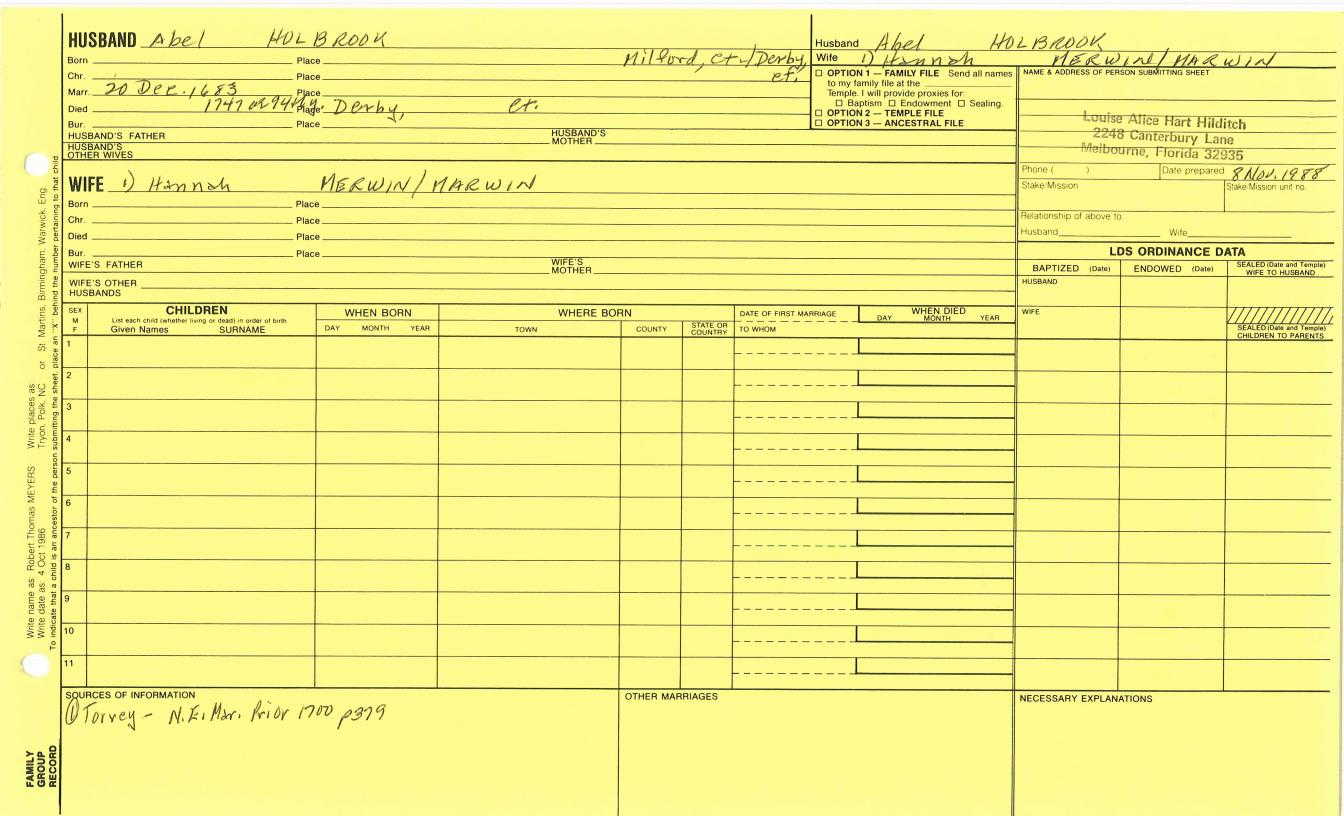 HUSBAND Abel HOLBROOK
Born Place Milford, Ct./Derby,
Chr. Place ct.
Marr. 20 Dec. 1683 Place
Died 1747 ae 94th y. Place Derby, ct.
Bur. Place
HUSBAND'S FATHER HUSBAND'S MOTHER
HUSBAND'S OTHER WIVES
WIFE 1) Hannah MERWIN/MARWIN
Born Place
Chr. Place
Died Place
Bur. Place
WIFE'S FATHER WIFE'S MOTHER
WIFE'S OTHER HUSBANDS
Husband Abel HOLBROOK
Wife 1) Hannah MERWIN/MARWIN
☐ OPTION 1 — FAMILY FILE Send all names
to my family file at the
Temple. I will provide proxies for:
☐ Baptism ☐ Endowment ☐ Sealing.
☐ OPTION 2 — TEMPLE FILE
☐ OPTION 3 — ANCESTRAL FILE
NAME & ADDRESS OF PERSON SUBMITTING SHEET
Louise Alice Hart Hilditch
2248 Canterbury Lane
Melbourne, Florida 32935
Phone ( ) Date prepared 8 Nov. 1988
Stake/Mission Stake/Mission unit no.
Relationship of above to:
Husband Wife
LDS ORDINANCE DATA
BAPTIZED (Date) ENDOWED (Date) SEALED (Date and Temple) WIFE TO HUSBAND
HUSBAND
WIFE
SEALED (Date and Temple)
CHILDREN TO PARENTS
SEX M F
CHILDREN
List each child (whether living or dead) in order of birth.
Given Names SURNAME
WHEN BORN
DAY MONTH YEAR
WHERE BORN
TOWN COUNTY STATE OR COUNTRY
DATE OF FIRST MARRIAGE
TO WHOM
WHEN DIED
DAY MONTH YEAR
1
2
3
4
5
6
7
8
9
10
11
SOURCES OF INFORMATION
① Torrey - N.E. Mar. Prior 1700 p379
OTHER MARRIAGES
NECESSARY EXPLANATIONS
FAMILY
GROUP
RECORD
Write name as: Robert Thomas MEYERS Write places as Tryon, Polk, NC or St. Martins, Birmingham, Warwick, Eng.
Write date as: 4 Oct 1986
To indicate that a child is an ancestor of the person submitting the sheet, place an "X" behind the number pertaining to that child